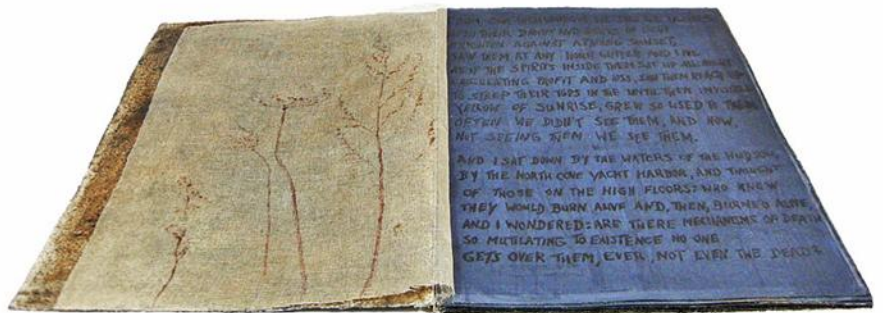 FROM OUR HIGH WINDOW WE SAW THE TOWERS
WITH THEIR BANDS AND BLOCKS OF LIGHT
BRIGHTEN AGAINST A FADING SUNSET,
SAW THEM AT ANY HOUR GLITTER AND LIVE
AS IF THE SPIRITS INSIDE THEM SAT UP ALL NIGHT
CALCULATING PROFIT AND LOSS, SAW THEM REACH UP
TO STEEP THEIR TOPS IN THE UNTIL THEN INVISIBLE
YELLOW OF SUNRISE, GREW SO USED TO THEM
OFTEN WE DIDN'T SEE THEM, AND NOW,
NOT SEEING THEM, WE SEE THEM.
AND I SAT DOWN BY THE WATERS OF THE HUDSON,
BY THE NORTH COVE YACHT HARBOR, AND THOUGHT
OF THOSE ON THE HIGH FLOORS WHO KNEW
THEY WOULD BURN ALIVE AND, THEN, BURNED ALIVE.
AND I WONDERED: ARE THERE MECHANISMS OF DEATH
SO MUTILATING TO EXISTENCE NO ONE
GETS OVER THEM, EVER, NOT EVEN THE DEAD?